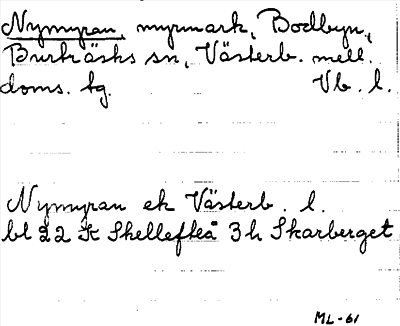 Nymyran, myrmark, Bodbyn,
Burträsks sn, Västerb. mell.
doms. tg. Vb. l.
Nymyran ek Västerb. l.
bl 22 St Skellefteå 3 h Skarberget
ML-61